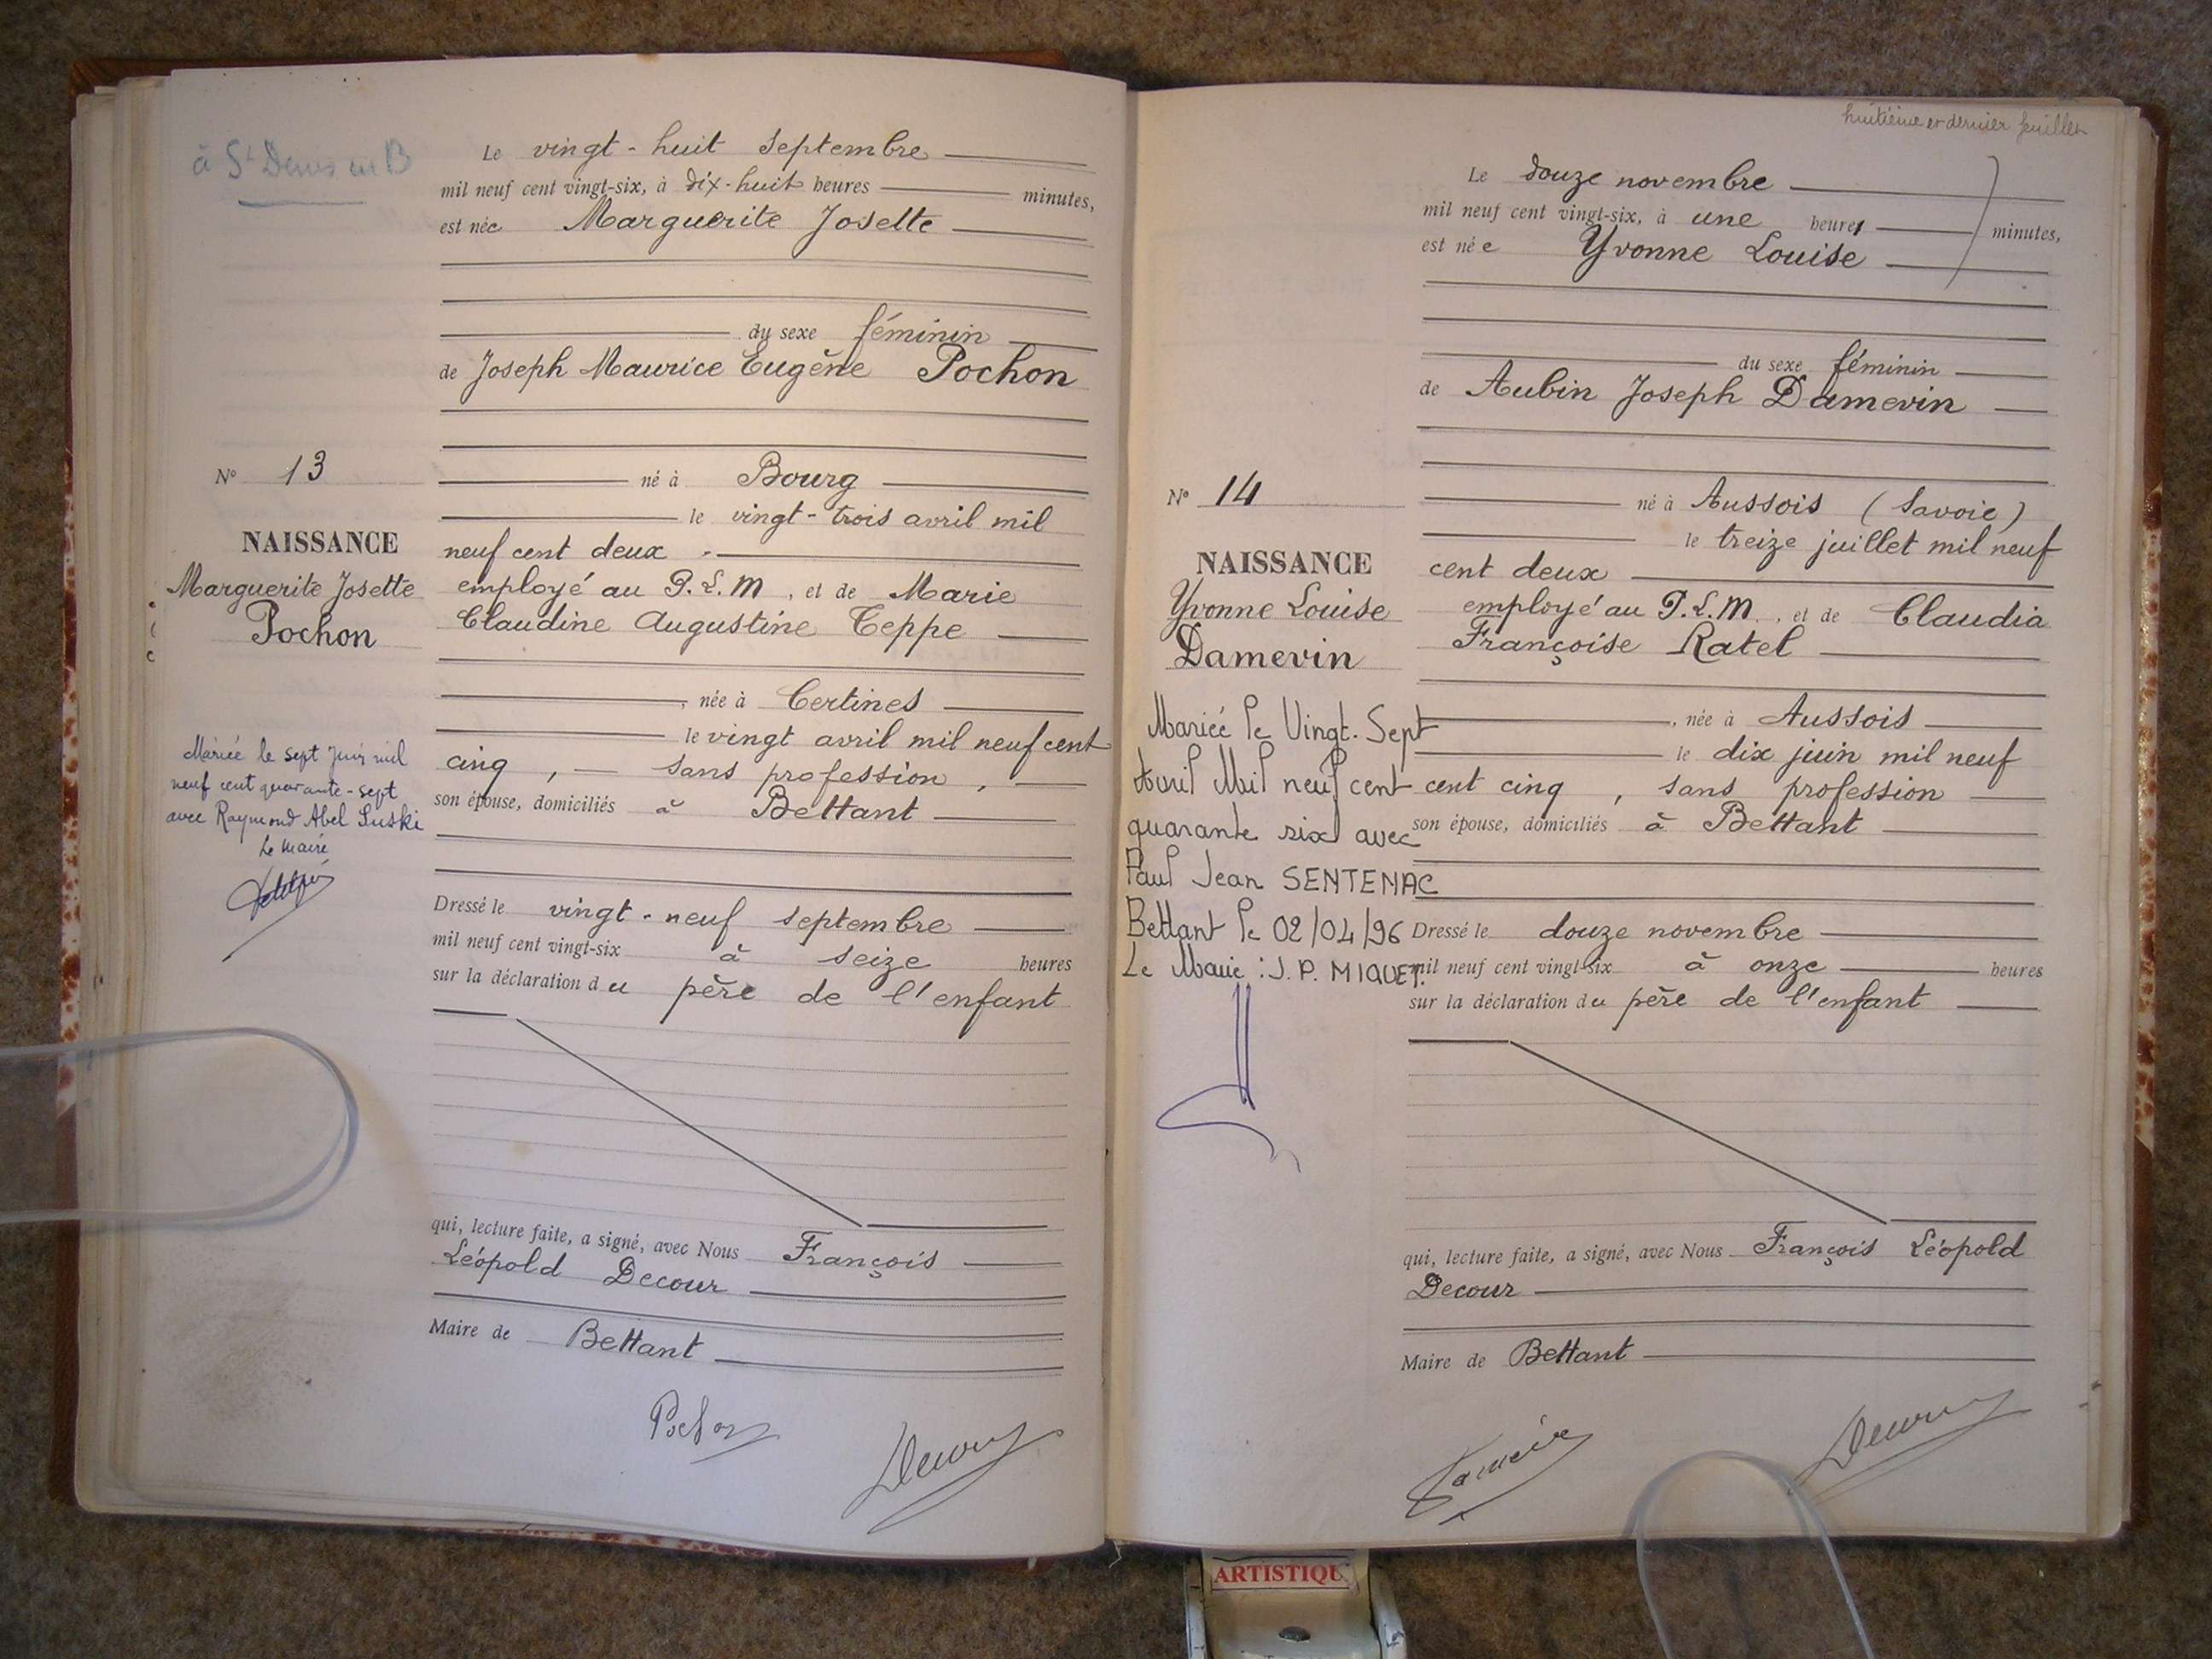 à St Denis en B
Le vingt-huit Septembre
mil neuf cent vingt-six, à dix-huit heures minutes,
est née Marguerite Josette
du sexe féminin
de Joseph Maurice Eugène Pochon
N° 13
né à Bourg
le vingt-trois avril mil
neuf cent deux
NAISSANCE
Marguerite Josette
Pochon
employé au P.L.M, et de Marie
Claudine Augustine Teppe
, née à Certines
le vingt avril mil neuf cent
cinq, sans profession,
son épouse, domiciliés à Bettant
Mariée le sept juin mil
neuf cent quarante-sept
avec Raymond Abel Suski
Le Maire
Dressé le vingt-neuf septembre
mil neuf cent vingt-six à seize heures
sur la déclaration du père de l'enfant
qui, lecture faite, a signé, avec Nous François
Léopold Decour
Maire de Bettant
Pochon
Decour
huitième et dernier feuillet
Le douze novembre
mil neuf cent vingt-six, à une heures minutes,
est née Yvonne Louise
du sexe féminin
de Aubin Joseph Damevin
N° 14
né à Aussois (Savoie)
le treize juillet mil neuf
cent deux
NAISSANCE
Yvonne Louise
Damevin
employé au P.L.M., et de Claudia
Françoise Ratel
, née à Aussois
le dix juin mil neuf
cent cinq, sans profession
son épouse, domiciliés à Bettant
Mariée le Vingt-Sept
Avril Mil neuf cent
quarante six avec
Paul Jean SENTENAC
Bettant le 02/04/96
Le Maire : J.P. MIGUET.
Dressé le douze novembre
mil neuf cent vingt-six à onze heures
sur la déclaration du père de l'enfant
qui, lecture faite, a signé, avec Nous François Léopold
Decour
Maire de Bettant
Damevin
Decour
ARTISTIQU